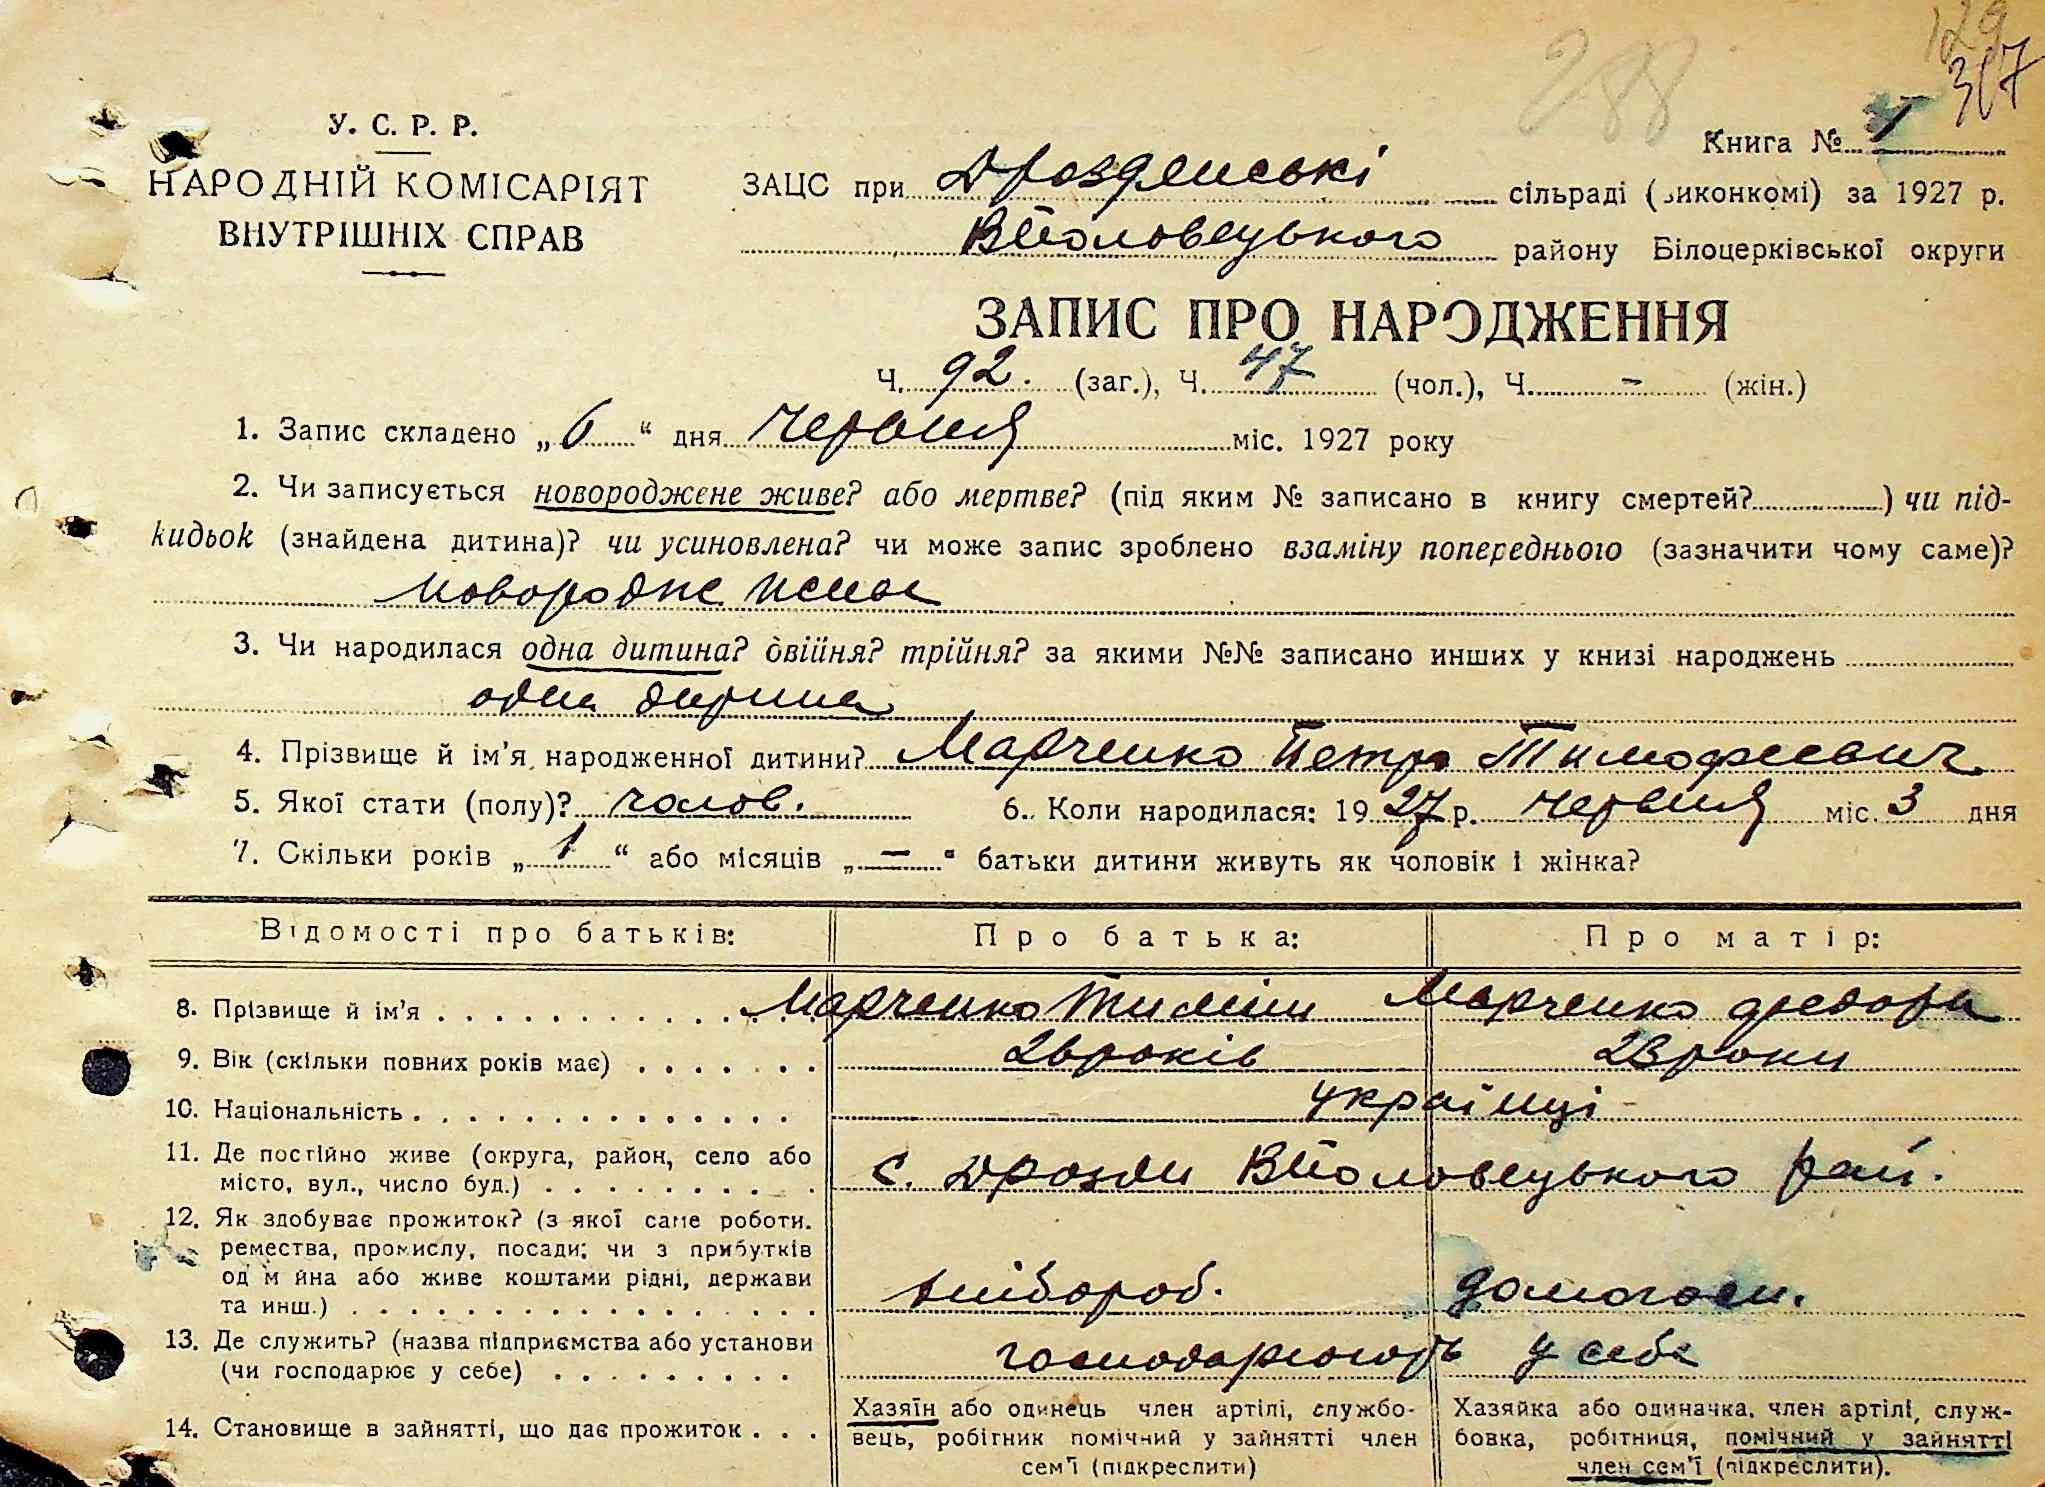 129
288
307
У. С. Р. Р.
НАРОДНІЙ КОМІСАРІЯТ
ВНУТРІШНІХ СПРАВ
Книга №
ЗАЦС при Дрозденські сільраді (виконкомі) за 1927 р.
ВПоловецького району Білоцерківської округи
ЗАПИС ПРО НАРОДЖЕННЯ
Ч. 92. (заг.), Ч. 47 (чол.), Ч. - (жін.)
1. Запис складено „6“ дня червня міс. 1927 року
2. Чи записується новороджене живе? або мертве? (під яким № записано в книгу смертей?) чи під-
кидьок (знайдена дитина)? чи усиновлена? чи може запис зроблено взаміну попереднього (зазначити чому саме)?
новородже
3. Чи народилася одна дитина? двійня? трійня? за якими №№ записано инших у книзі народжень
одна дитина
4. Прізвище й ім'я народженної дитини? Марченко Петро Тимофеевич
5. Якої стати (полу)? чолов. 6. Коли народилася: 1927 р. червня міс. 3 дня
7. Скільки років „1“ або місяців „—“ батьки дитини живуть як чоловік і жінка?
Відомості про батьків: Про батька: Про матір:
8. Прізвище й ім'я . . . . . . . . . . . . Марченко Тиміш Марченко Федора
9. Вік (скільки повних років має) . . . . . . . 26 років 23 роки
10. Національність . . . . . . . . . . . . . українці -
11. Де постійно живе (округа, район, село або
місто, вул., число буд.) . . . . . . . . . с. Дрозди ВПоловецького рай.
12. Як здобуває прожиток? (з якої саме роботи.
ремества, промислу, посади; чи з прибутків
од м йна або живе коштами рідні, держави
та инш.) . . . . . . . . . . . . . . . . хлібороб. домогосп.
13. Де служить? (назва підприємства або установи
(чи господарює у себе) . . . . . . . . . господарюють у себе
14. Становище в зайнятті, що дає прожиток . . .
Хазяїн або одинець член артілі, службо-
вець, робітник помічний у зайнятті член
сем'ї (підкреслити)
Хазяйка або одиначка, член артілі, служ-
бовка, робітниця, помічний у зайнятті
член сем'ї (підкреслити).